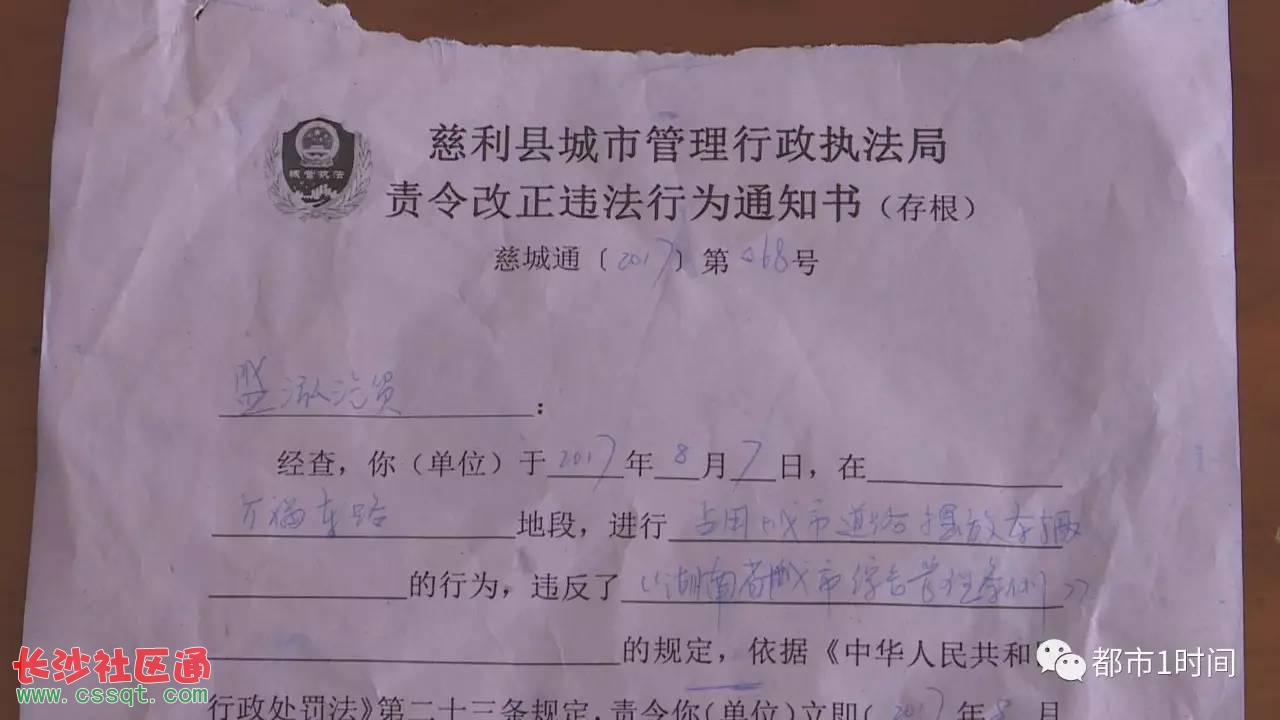 慈利县城市管理行政执法局
城管执法
责令改正违法行为通知书（存根）
慈城通〔2017〕第068号
盛泓汽贸：
经查，你（单位）于2017年8月7日，在
万福东路地段，进行占用城市道路摆放车辆
的行为，违反了《湖南省城市综合管理条例》
的规定，依据《中华人民共和
行政处罚法》第二十三条规定，责令你（单位）立即（2017年8月
长沙社区通
www.cssqt.com
都市1时间